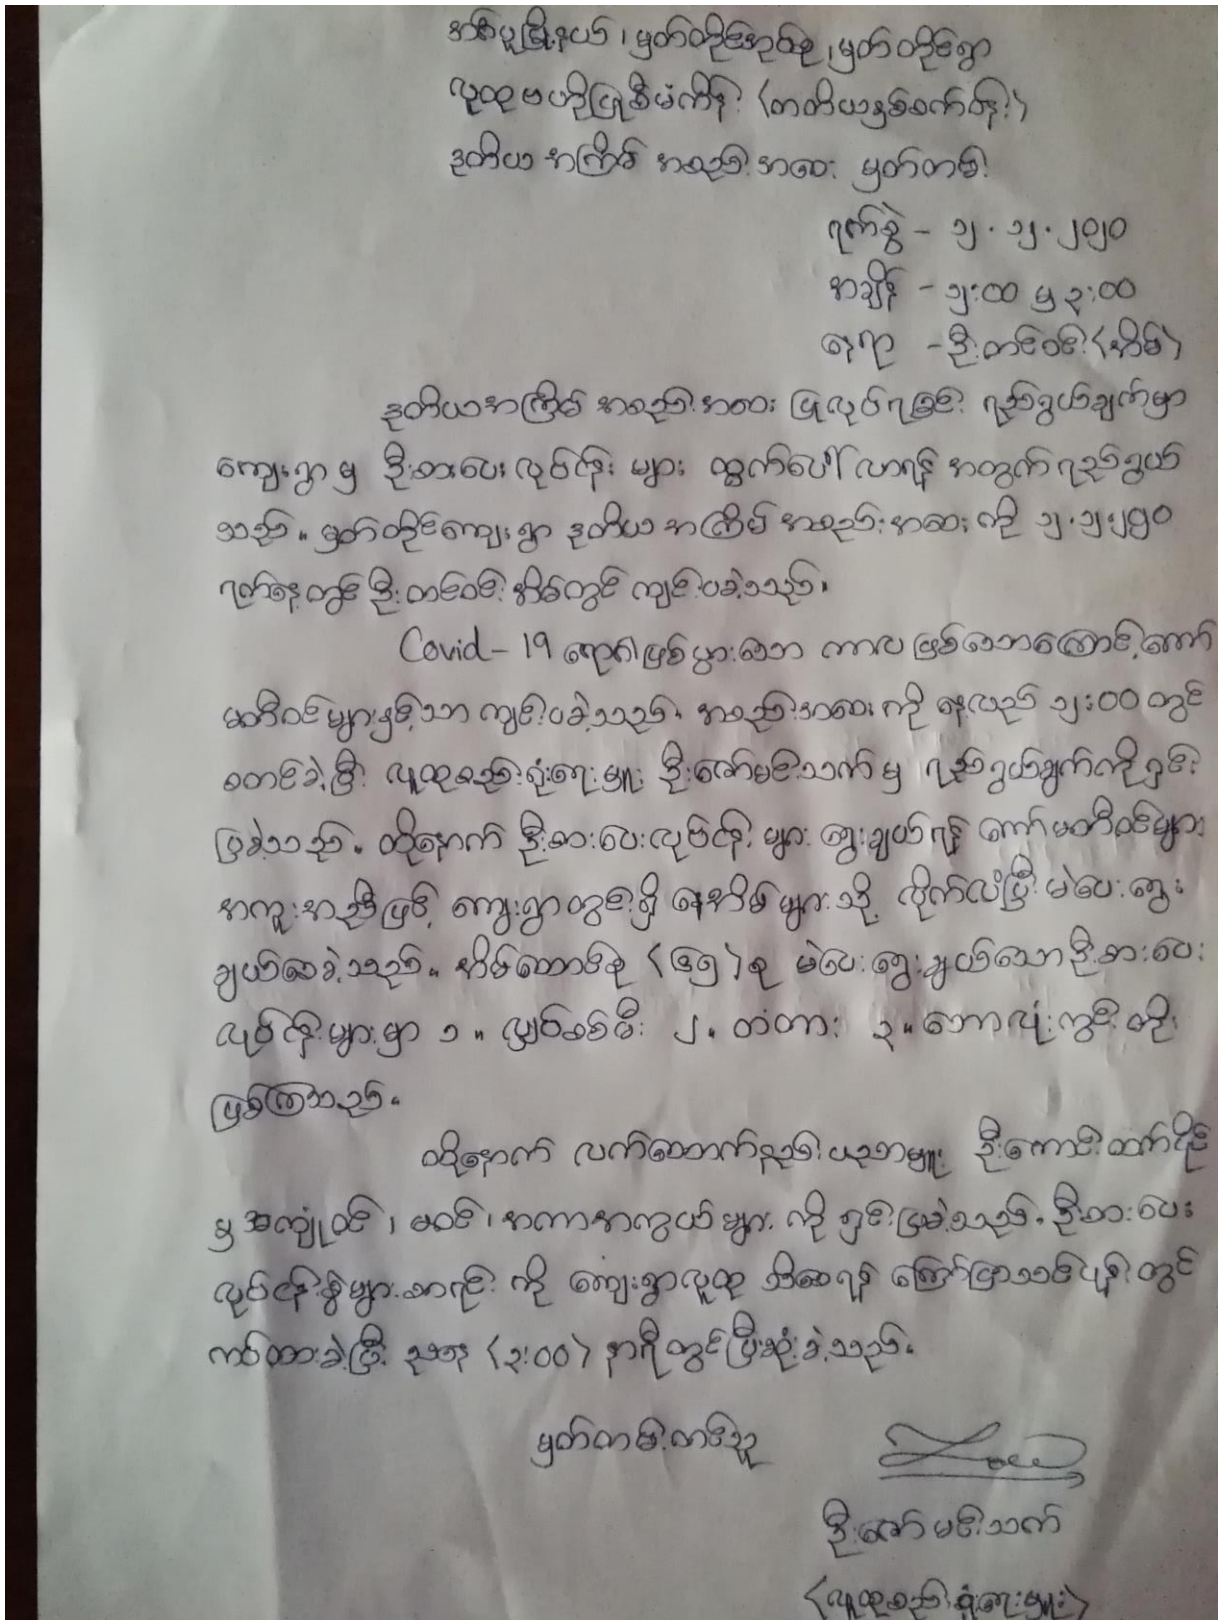 အမ်ပူမြို့နယ်၊ မှတ်တိုင်အုပ်စု၊ မှတ်တိုင်ရွာ
လူထုဗဟိုပြုစီမံကိန်း (တတိယနှစ်စက်ဝန်း)
ဒုတိယ အကြိမ် အစည်းအဝေး မှတ်တမ်း
ရက်စွဲ - ၁၂.၁၂.၂၀၂၀
အချိန် - ၁၂:၀၀ မှ ၃:၀၀
နေရာ - ဦးတင်ဝင်း (အိမ်)
ဒုတိယအကြိမ် အစည်းအဝေး ပြုလုပ်ရခြင်း ရည်ရွယ်ချက်မှာ
ကျေးရွာ မှ ဦးစားပေး လုပ်ငန်း များ ထွက်ပေါ်လာရန် အတွက် ရည်ရွယ်
သည်။ မှတ်တိုင်ကျေးရွာ ဒုတိယ အကြိမ် အစည်းအဝေး ကို ၁၂.၁၂.၂၀၂၀
ရက်နေ့တွင် ဦးတင်ဝင်း အိမ်တွင် ကျင်းပခဲ့သည်။
Covid-19 ရောဂါဖြစ်ပွားသော ကာလ ဖြစ်သောကြောင့် ကော်
မတီဝင်များနှင့်သာ ကျင်းပခဲ့သည်။ အစည်းအဝေး ကို နေ့လည် ၁၂:၀၀ တွင်
စတင်ခဲ့ပြီး လူထုစည်းရုံးရေးမှူး ဦးဇော်မင်းသက် မှ ရည်ရွယ်ချက်ကို ရှင်း
ပြခဲ့သည်။ ထို့နောက် ဦးစားပေးလုပ်ငန်း များ ရွေးချယ်ရန် ကော်မတီဝင်များ
အကူအညီဖြင့် ကျေးရွာတွင်းရှိ နေအိမ်များသို့ လိုက်လံပြီး မဲပေးရွေး
ချယ်စေခဲ့သည်။ အိမ်ထောင်စု (၄၅) စု မဲပေးရွေးချယ်သော ဦးစားပေး
လုပ်ငန်းများမှာ ၁။ လျှပ်စစ်မီး ၂။ တံတား ၃။ ဘောလုံးကွင်း တို့
ဖြစ်ကြသည်။
ထို့နောက် လက်ထောက်နည်းပညာမှူး ဦးကောင်းထက်နိုင်
မှ အကျုံးဝင်၊ မဝင်၊ အကာအကွယ်များ ကို ရှင်းပြခဲ့သည်။ ဦးစားပေး
လုပ်ငန်းခွဲများစာရင်း ကို ကျေးရွာလူထု သိစေရန် ကြော်ငြာသင်ပုန်းတွင်
ကပ်ထားခဲ့ပြီး ညနေ (၃:၀၀) နာရီတွင် ပြီးဆုံးခဲ့သည်။
မှတ်တမ်းတင်သူ
ဦးဇော်မင်းသက်
(လူထုစည်းရုံးရေးမှူး)